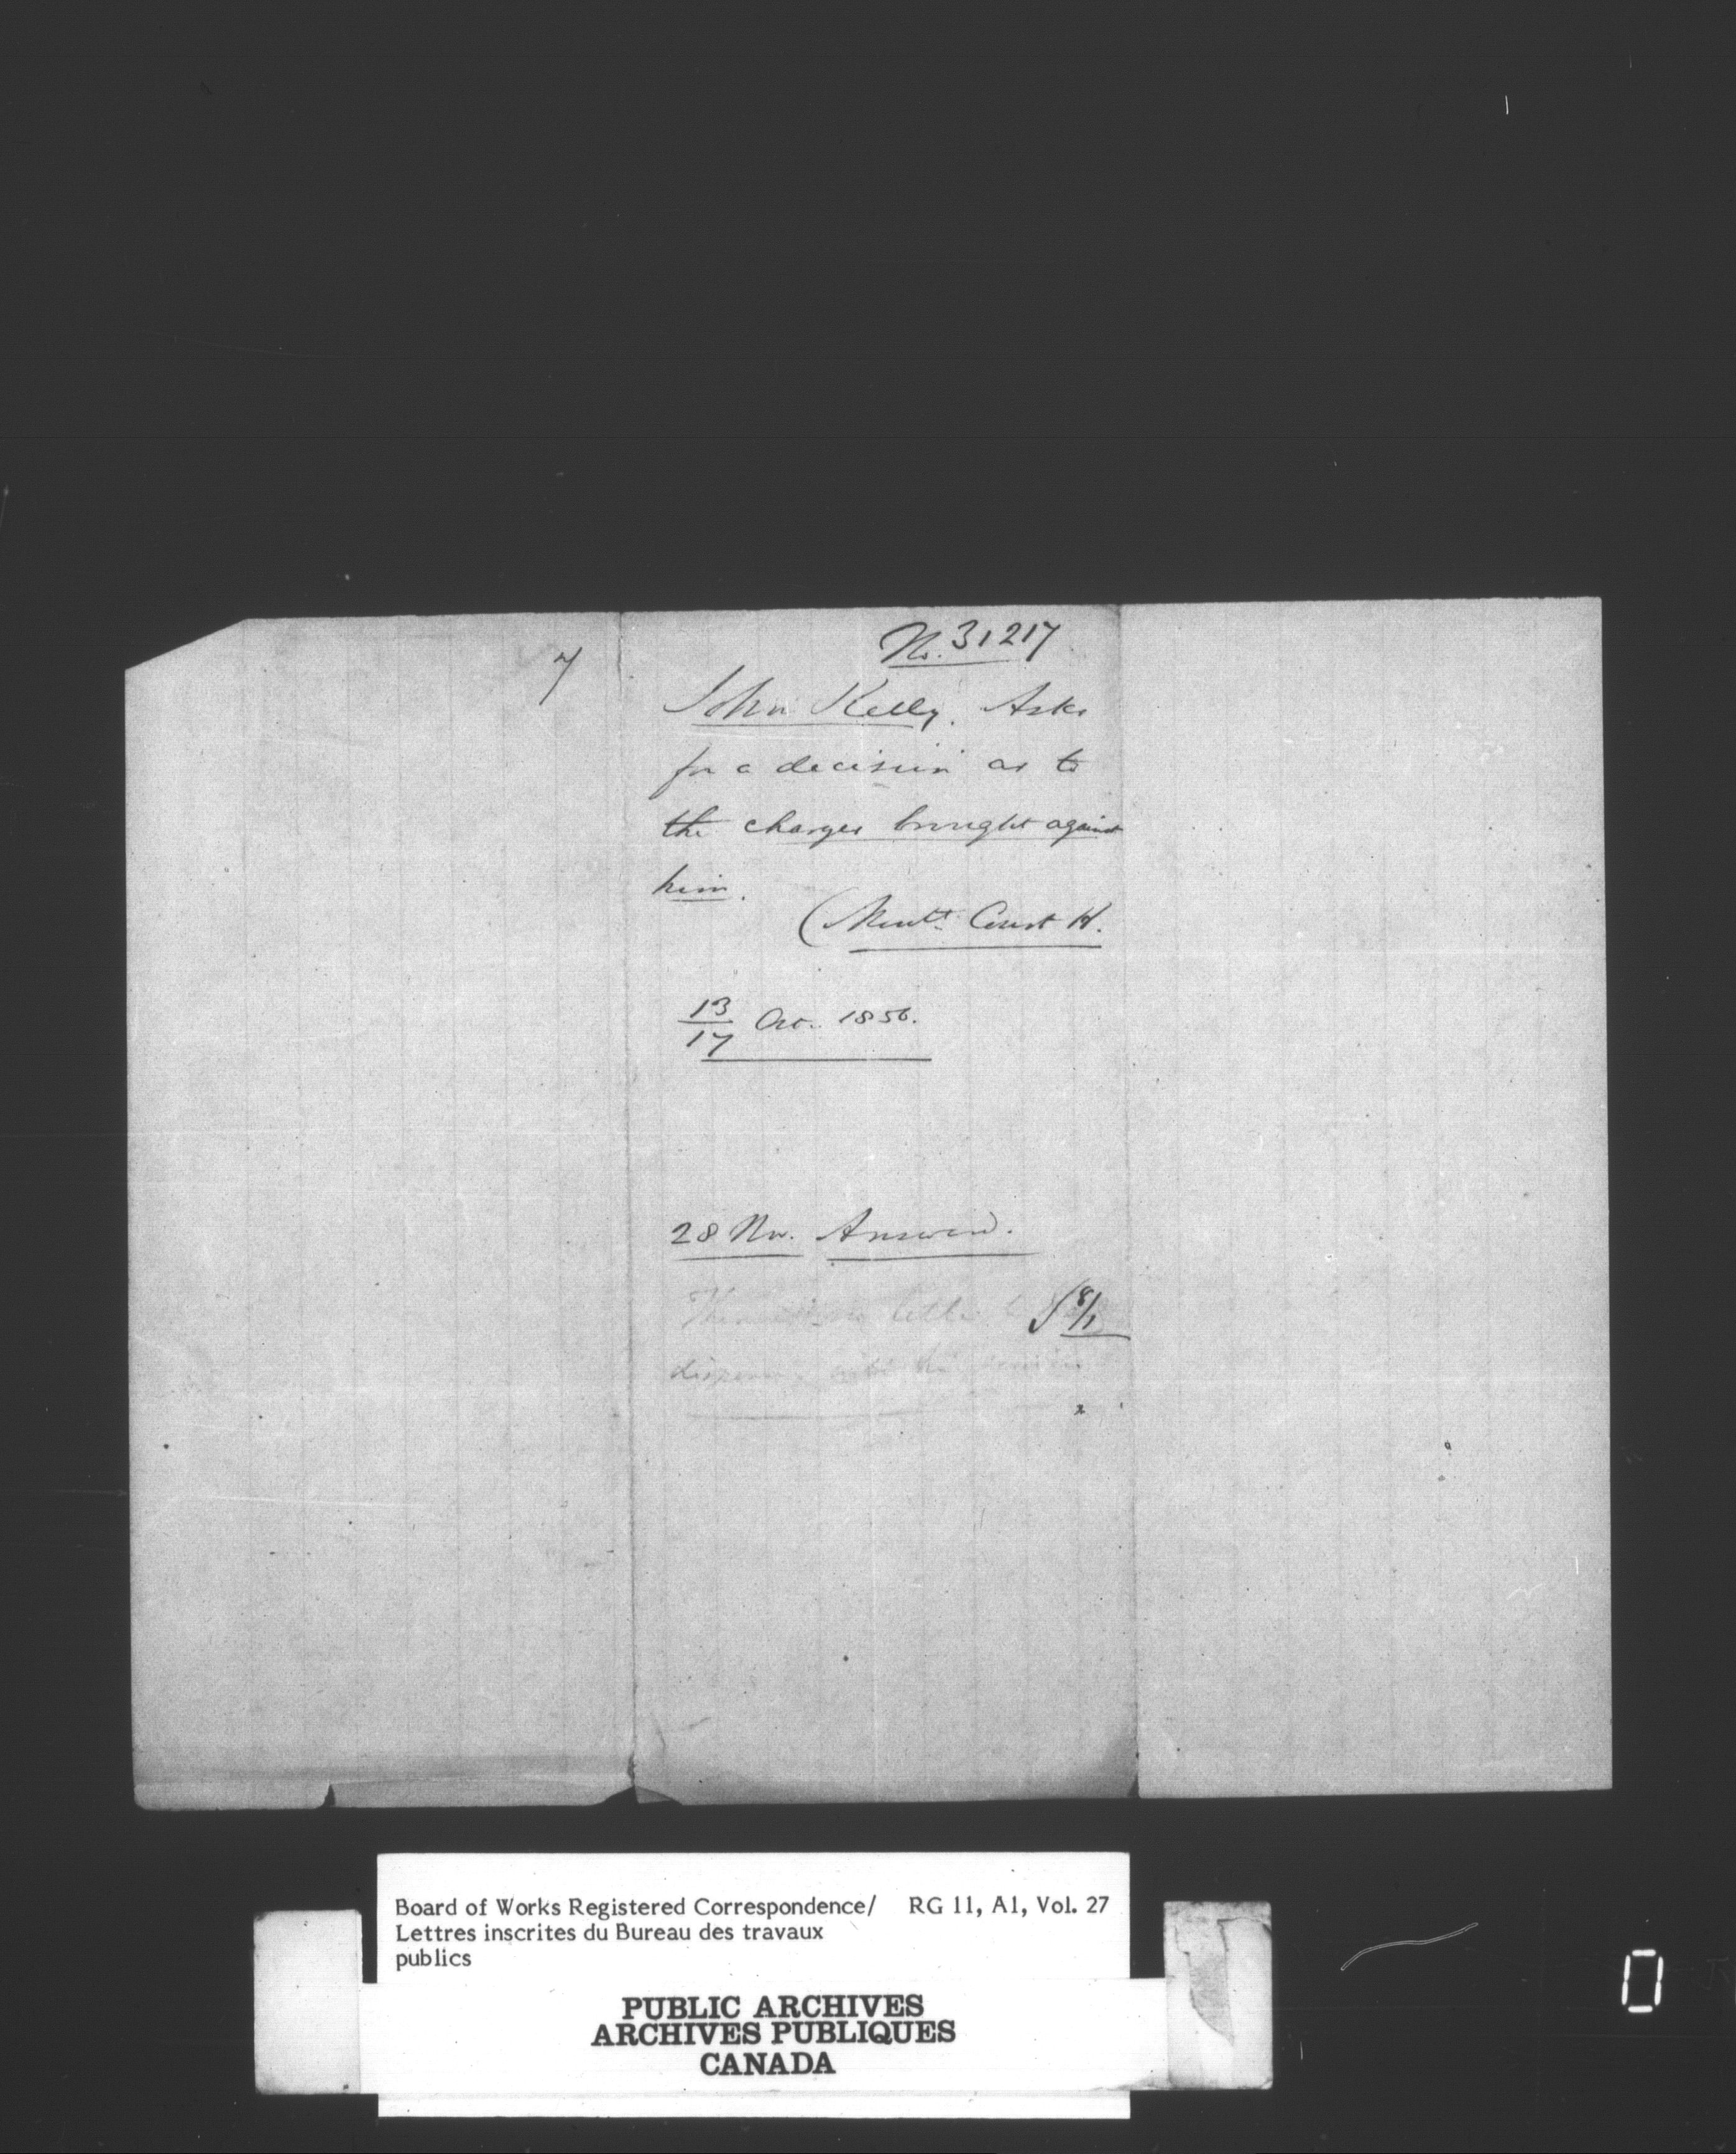 7
No. 31217
John Kelly. Asks
for a decision as to
the charges brought against
him.
(Montl. Court H.
13/17 Oct. 1856.
28 Nov. Answered.
8/1
Board of Works Registered Correspondence/ RG 11, A1, Vol. 27
Lettres inscrites du Bureau des travaux
publics
PUBLIC ARCHIVES
ARCHIVES PUBLIQUES
CANADA
0